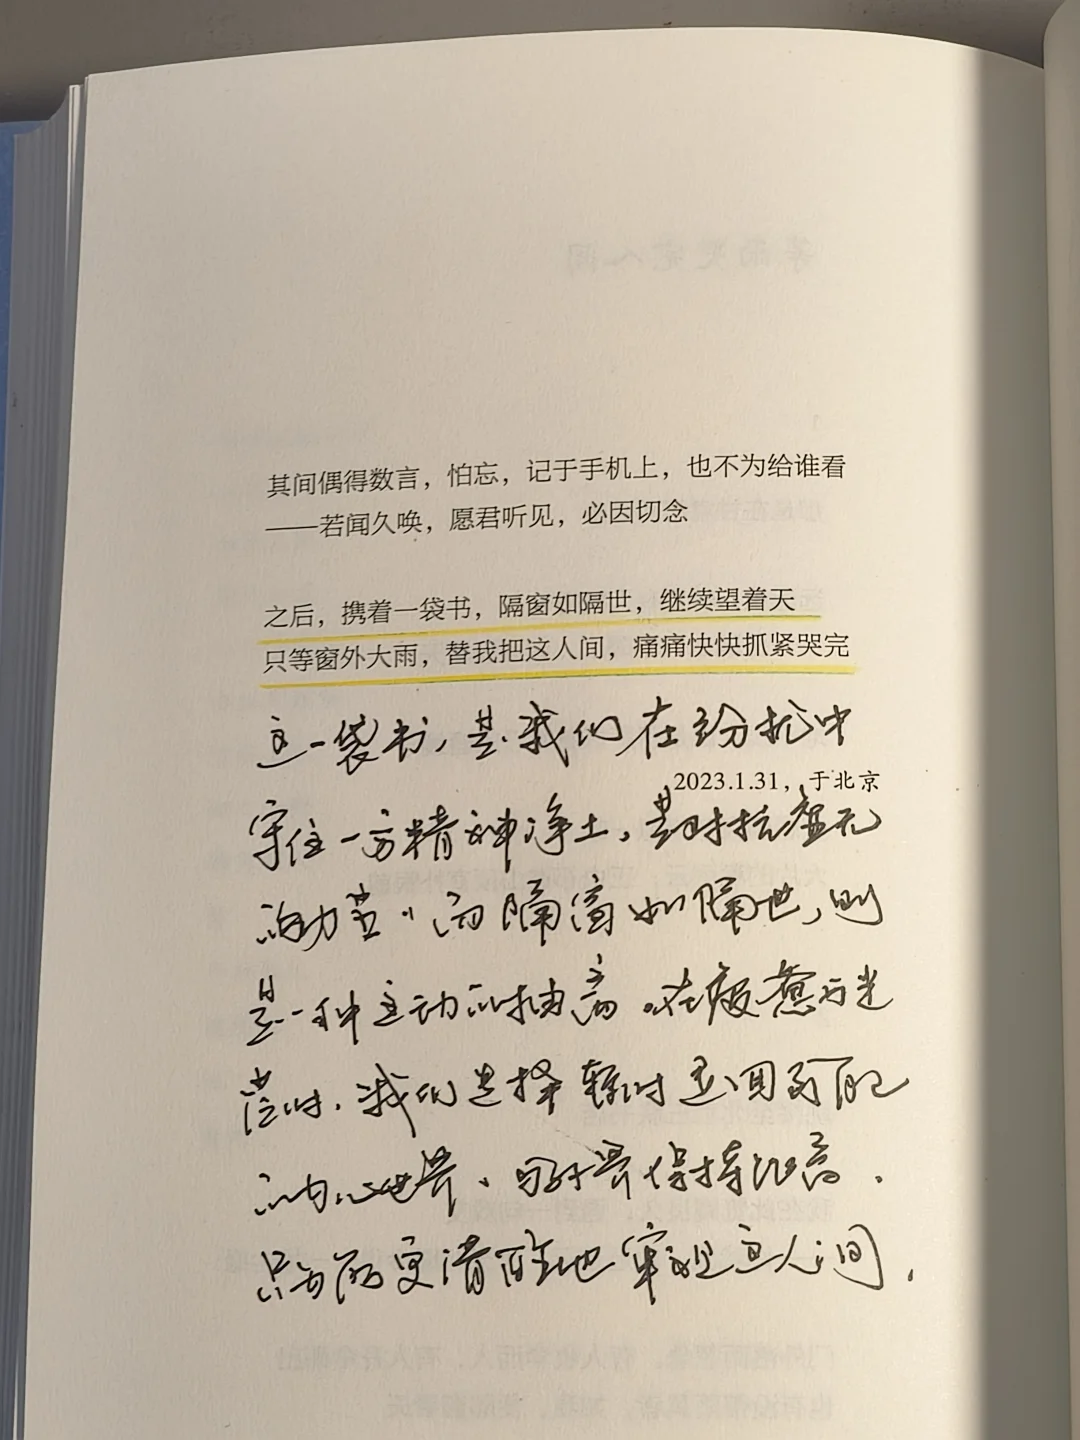 其间偶得数言，怕忘，记于手机上，也不为给谁看
——若闻久唤，愿君听见，必因切念
之后，携着一袋书，隔窗如隔世，继续望着天
只等窗外大雨，替我把这人间，痛痛快快抓紧哭完
这一袋书，是我们在纷扰中
2023.1.31，于北京
守住一方精神净土，是对抗虚无
的力量。而隔窗如隔世，则
是一种主动的抽离。在疲惫与迷
茫时，我们选择暂时退回
的内心世界、与外界保持距离．
只为能更清醒地审视这人间．